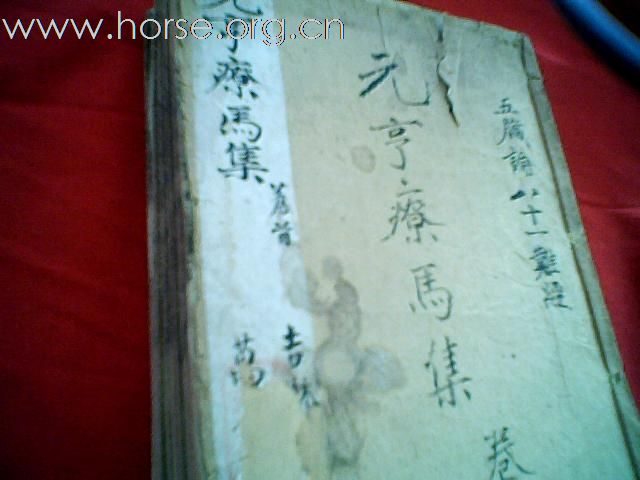 www.horse.org.cn
五臟論八十一難經
元亨療馬集
卷
元亨療馬集
卷首